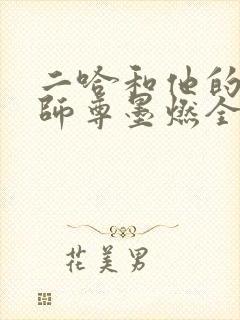 二哈和他的
師尊墨燃全
花美男